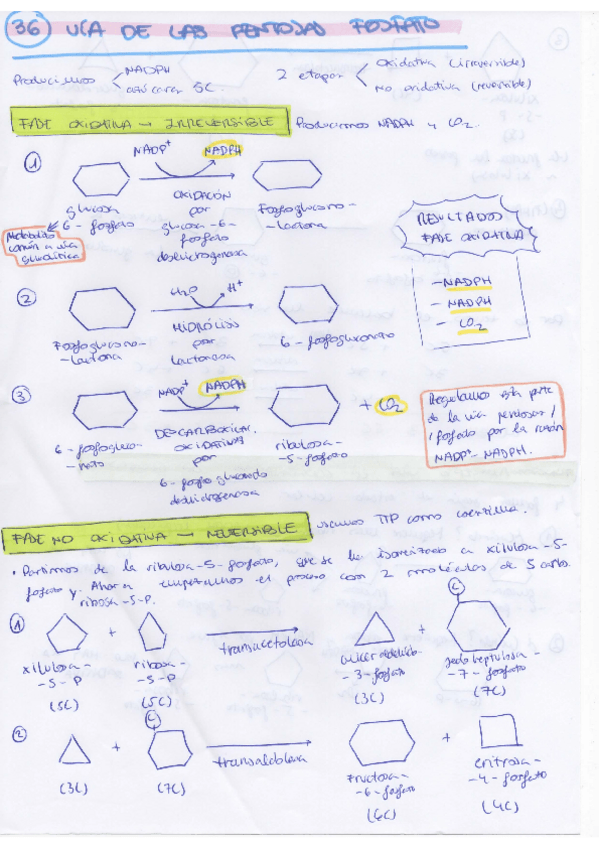 36 VÍA DE LAS PENTOSAS FOSFATO
Producimos < NADPH
azúcares 5C.
2 etapas < Oxidativa (irreversible)
No oxidativa (reversible)
FASE OXIDATIVA → IRREVERSIBLE Producimos NADPH y CO2.
1 NADP+ NADPH
glucosa
6-fosfato
OXIDACIÓN
por
glucosa-6-
fosfato
deshidrogenasa
Fosfoglucono-
-lactona
Metabolito
común a vía
glucolítica
RESULTADOS
FASE OXIDATIVA
- NADPH
- NADPH
- CO2
2 H2O H+
Fosfoglucono-
-lactona
HIDRÓLISIS
por
lactonasa
6-fosfogluconato
3 NADP+ NADPH + CO2
6-fosfogluco-
-nato
DESCARBOXILAC.
OXIDATIVA
por
6-fosfogluconato
deshidrogenasa
ribulosa-
-5-fosfato
Regulamos esta parte
de la vía pentosas/
/fosfato por la razón
NADP+-NADPH.
FASE NO OXIDATIVA → REVERSIBLE usamos TTP como coenzima.
· Partimos de la ribulosa-5-fosfato, que se ha isomerizado a xilulosa-5-
fosfato y ribosa-5-P. Ahora empezamos el proceso con 2 moléculas de 5 carbo.
1 + transacetolasa + C
xilulosa-
-5-P
(5C)
ribosa-
-5-P
(5C)
gliceraldehido-
-3-fosfato
(3C)
sedoheptulosa-
-7-fosfato
(7C)
2 + C transaldolasa +
(3C)
(7C)
fructosa-
-6-fosfato
(6C)
eritrosa-
-4-fosfato
(4C)